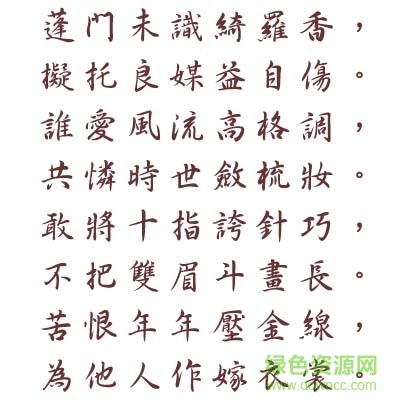 蓬門未識綺羅香，
擬托良媒益自傷。
誰愛風流高格調，
共憐時世斂梳妝。
敢將十指誇針巧，
不把雙眉斗畫長。
苦恨年年壓金線，
為他人作嫁衣裳。
绿色资源网